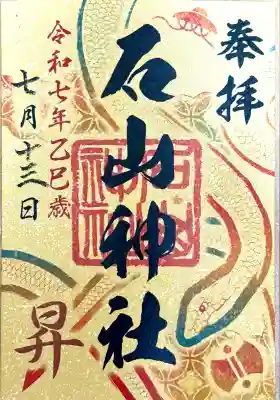 奉拝
石山神社
令和七年乙巳歳
七月十三日
昇